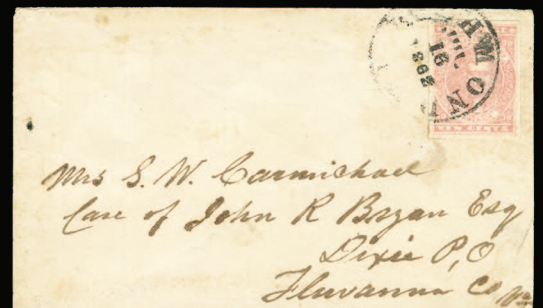 RICHMOND
JUL
16
1862
TEN CENTS
Mrs S. W. Carmichael
Care of John R Bryan Esq
Dixie P,O
Fluvanna Co Va